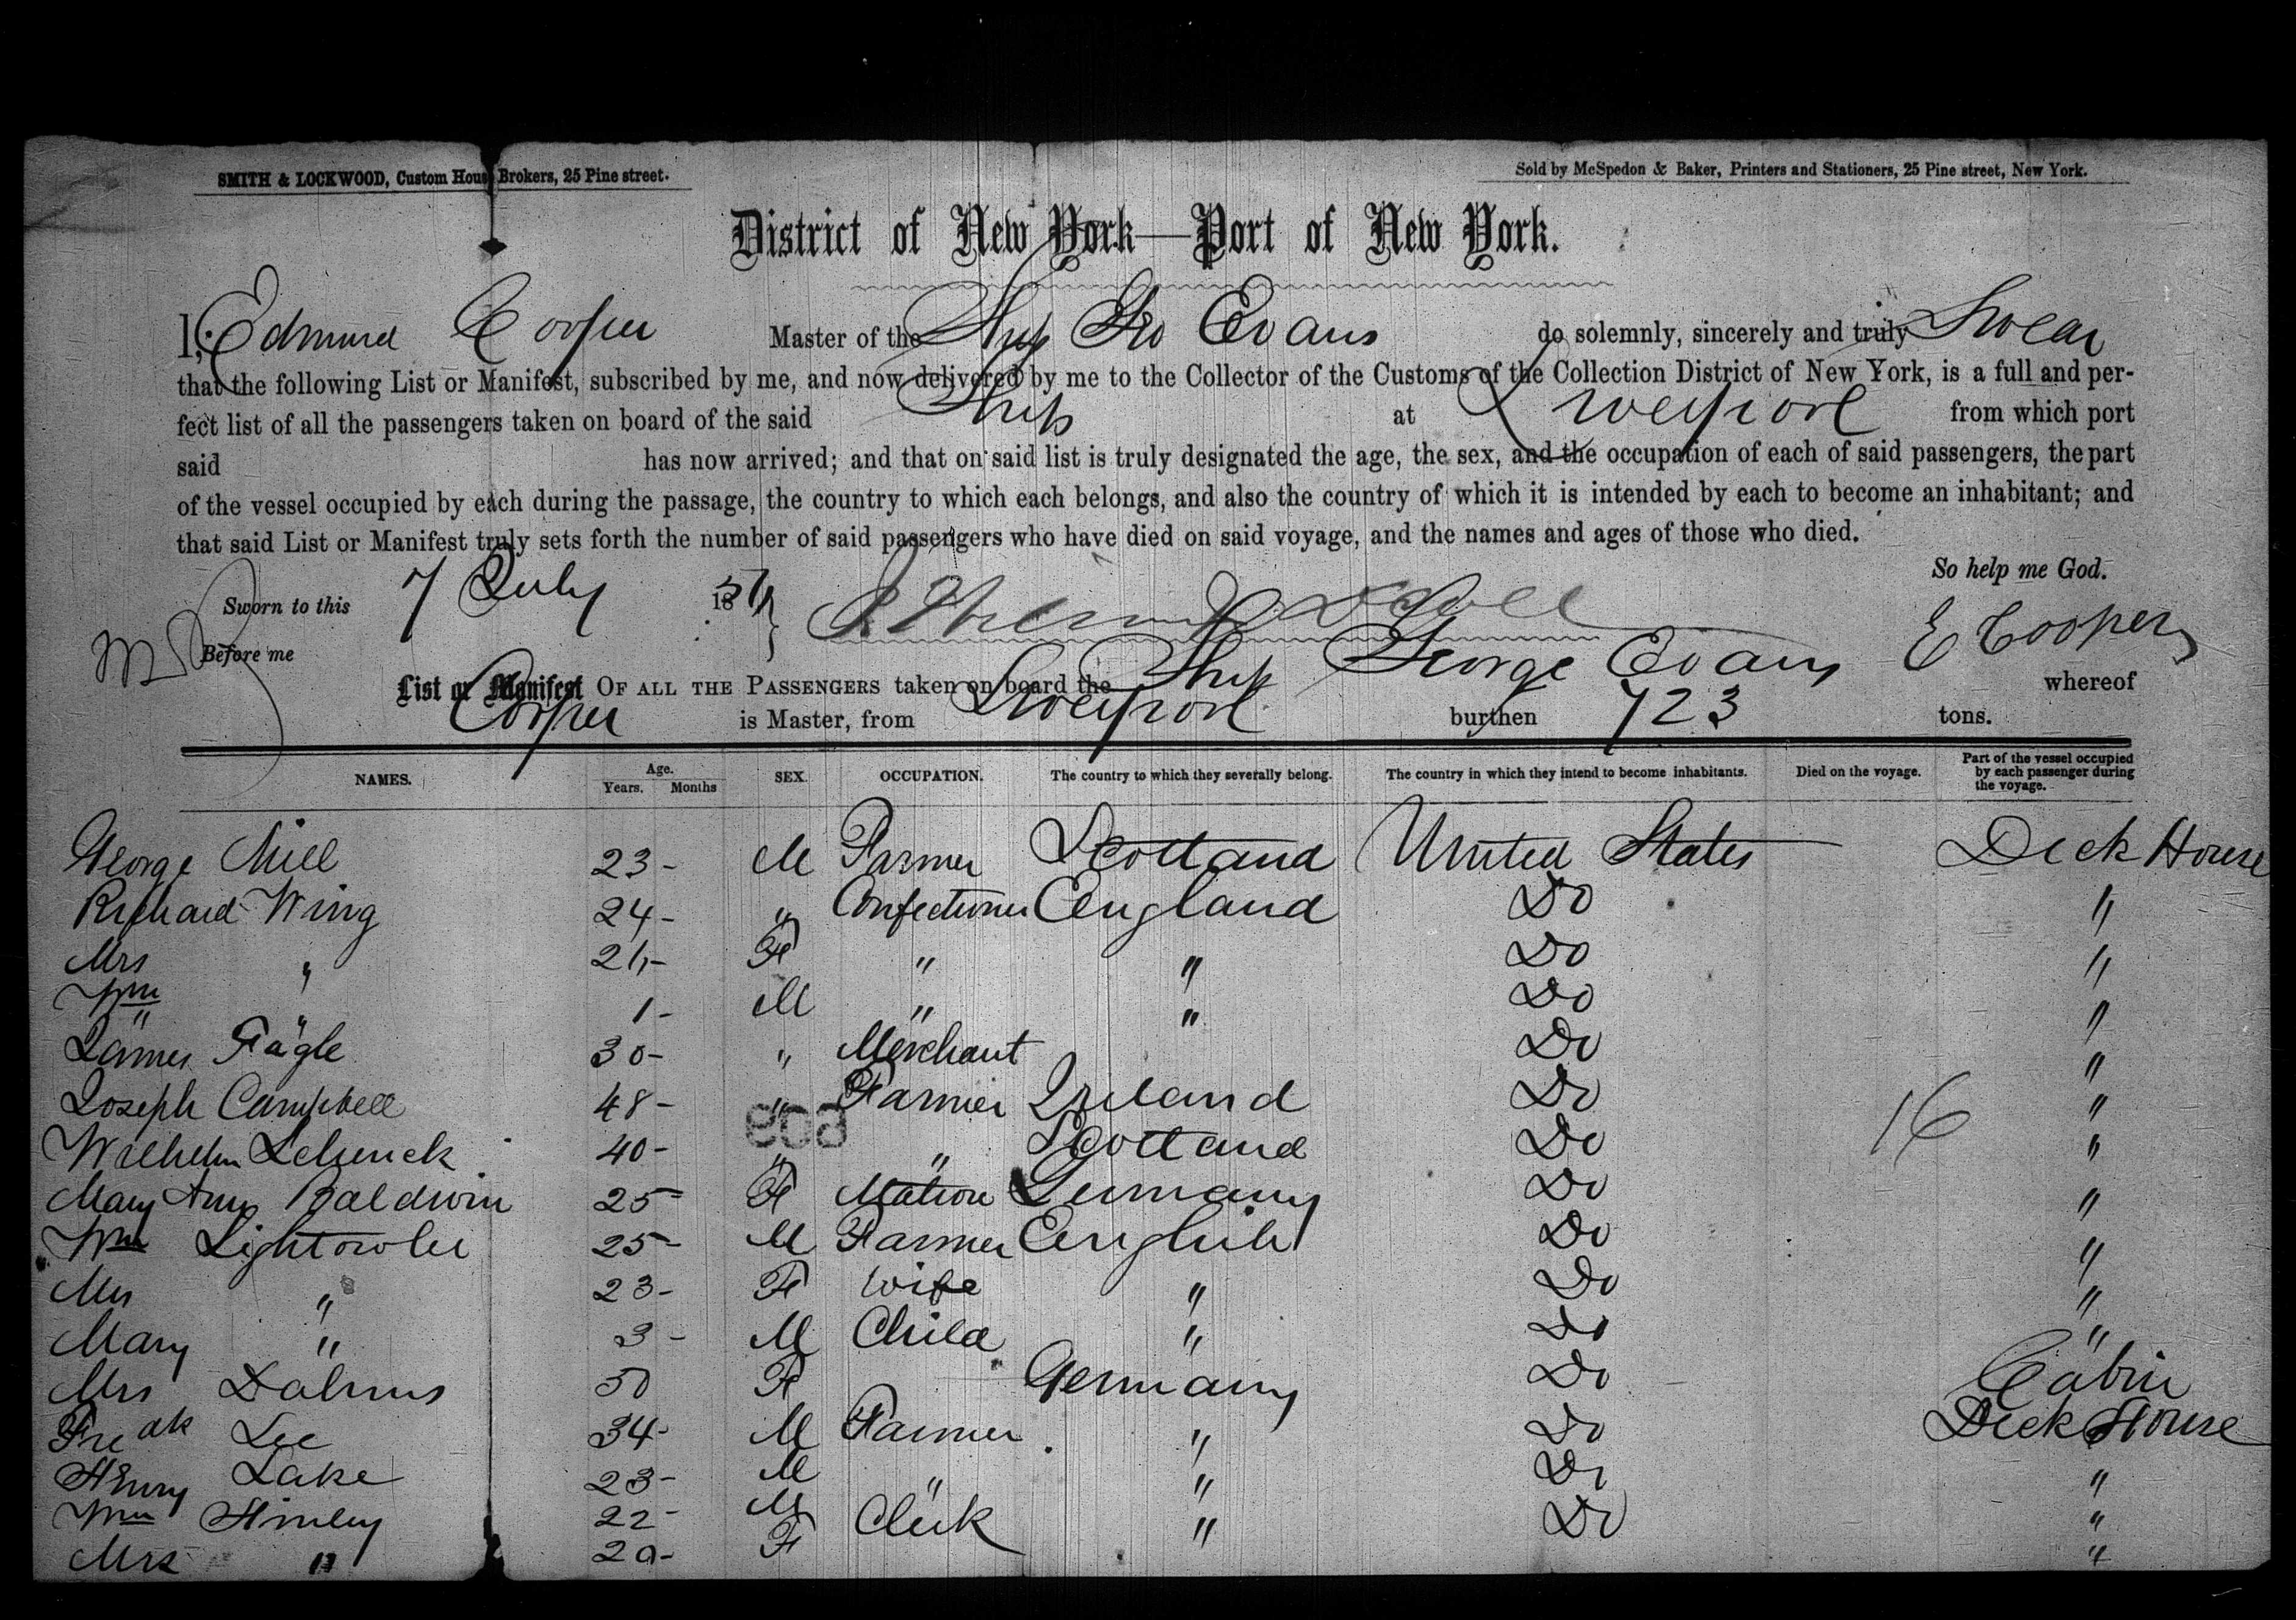 SMITH & LOCKWOOD, Custom House Brokers, 25 Pine street.
Sold by McSpedon & Baker, Printers and Stationers, 25 Pine street, New York.
District of New York—Port of New York.
I, Edmund Cooper Master of the Ship Geo Evans do solemnly, sincerely and truly Swear
that the following List or Manifest, subscribed by me, and now delivered by me to the Collector of the Customs of the Collection District of New York, is a full and per-
fect list of all the passengers taken on board of the said Ship at Liverpool from which port
said has now arrived; and that on said list is truly designated the age, the sex, and the occupation of each of said passengers, the part
of the vessel occupied by each during the passage, the country to which each belongs, and also the country of which it is intended by each to become an inhabitant; and
that said List or Manifest truly sets forth the number of said passengers who have died on said voyage, and the names and ages of those who died.
So help me God.
Sworn to this 7 July 1851
Before me E Cooper
List or Manifest OF ALL THE PASSENGERS taken on board the Ship George Evans whereof
Cooper is Master, from Liverpool burthen 723 tons.
NAMES. Age. Years. Months SEX. OCCUPATION. The country to which they severally belong. The country in which they intend to become inhabitants. Died on the voyage. Part of the vessel occupied by each passenger during the voyage.
George Mill 23- M Farmer Scotland United States Deck House
Richard Wing 24- " Confectioner England Do "
Mrs " F " " Do "
Wm " 1- M " " Do "
James Fagle 30- " Merchant " Do "
Joseph Campbell 48- " Farmer Ireland Do "
609
16
Wilhelm Schenck 40- " " Scotland Do "
Mary Ann Baldwin 25- F Matron Germany Do "
Wm Lightowler 25- M Farmer English Do "
Mrs " 23- F Wife " Do "
Mary " 3- M Child " Do "
Mrs Dahms 50 F Germany Do Cabin
Fredk Lee 34- M Farmer " Do Deck House
Henry Lake 23- M " " Do "
Wm Himley 22- M Clerk " Do "
Mrs " 20- F "